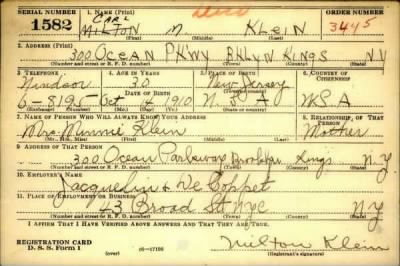 SERIAL NUMBER 1. NAME (Print) ORDER NUMBER
1582 CARL MILTON M. KLEIN 3445
(First) (Middle) (Last)
2. ADDRESS (Print)
300 OCEAN PKWY BKLYN KINGS NY
(Number and street or R. F. D. number) (Town) (County) (State)
3. TELEPHONE 4. AGE IN YEARS 5. PLACE OF BIRTH 6. COUNTRY OF CITIZENSHIP
Windsor 30 New Jersey
DATE OF BIRTH (Town or county)
6-8195 Oct 14 1910 U S A
(Exchange) (Number) (Mo.) (Day) (Yr.) (State or country)
7. NAME OF PERSON WHO WILL ALWAYS KNOW YOUR ADDRESS 8. RELATIONSHIP OF THAT PERSON
Mrs. Minnie Klein Mother
(Mr., Mrs., Miss) (First) (Middle) (Last)
9. ADDRESS OF THAT PERSON
300 Ocean Parkway Brooklyn Kings N.Y.
(Number and street or R. F. D. number) (Town) (County) (State)
10. EMPLOYER'S NAME
Jacquelin & De Coppet
11. PLACE OF EMPLOYMENT OR BUSINESS
43 Broad St NYC NY
(Number and street or R. F. D. number) (Town) (County) (State)
I AFFIRM THAT I HAVE VERIFIED ABOVE ANSWERS AND THAT THEY ARE TRUE.
REGISTRATION CARD
D. S. S. Form 1 (over) 16-17105 Milton Klein
(Registrant's signature)